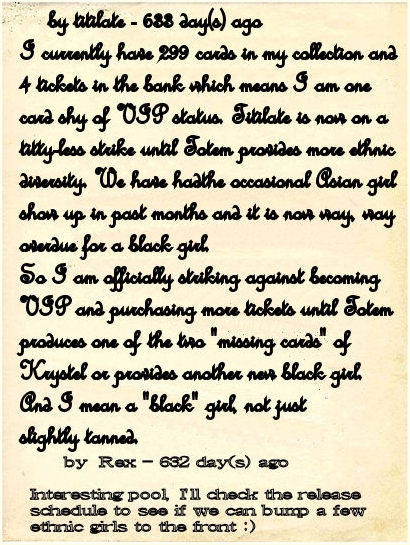 by titilate - 633 day(s) ago
I currently have 299 cards in my collection and
4 tickets in the bank which means I am one
card shy of VIP status. Titilate is now on a
titty-less strike until Totem provides more ethnic
diversity. We have hadthe occasional Asian girl
show up in past months and it is now way, way
overdue for a black girl.
So I am officially striking against becoming
VIP and purchasing more tickets until Totem
produces one of the two "missing cards" of
Krystel or provides another new black girl.
And I mean a "black" girl, not just
slightly tanned.
by Rex - 632 day(s) ago
Interesting pool, I'll check the release
schedule to see if we can bump a few
ethnic girls to the front :)